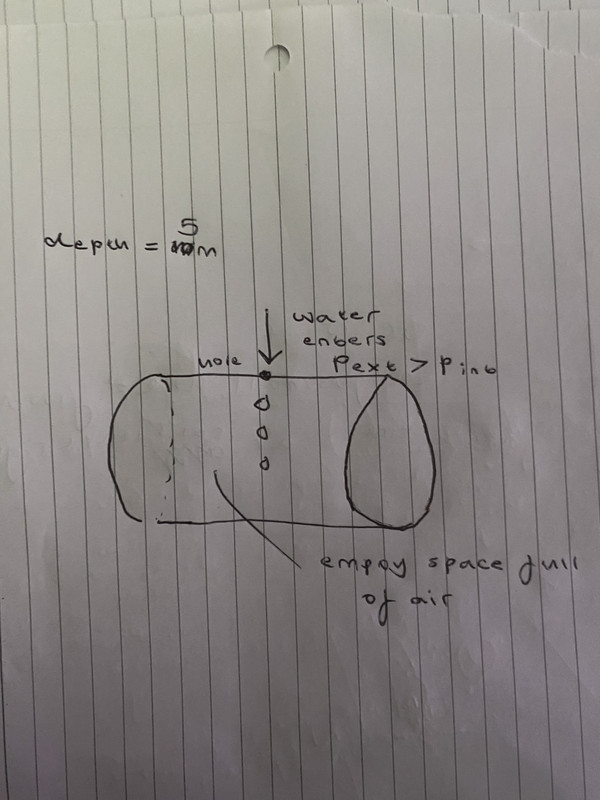 depth = 5 m
water
enters
hole
Pext > Pint
empty space full
of air